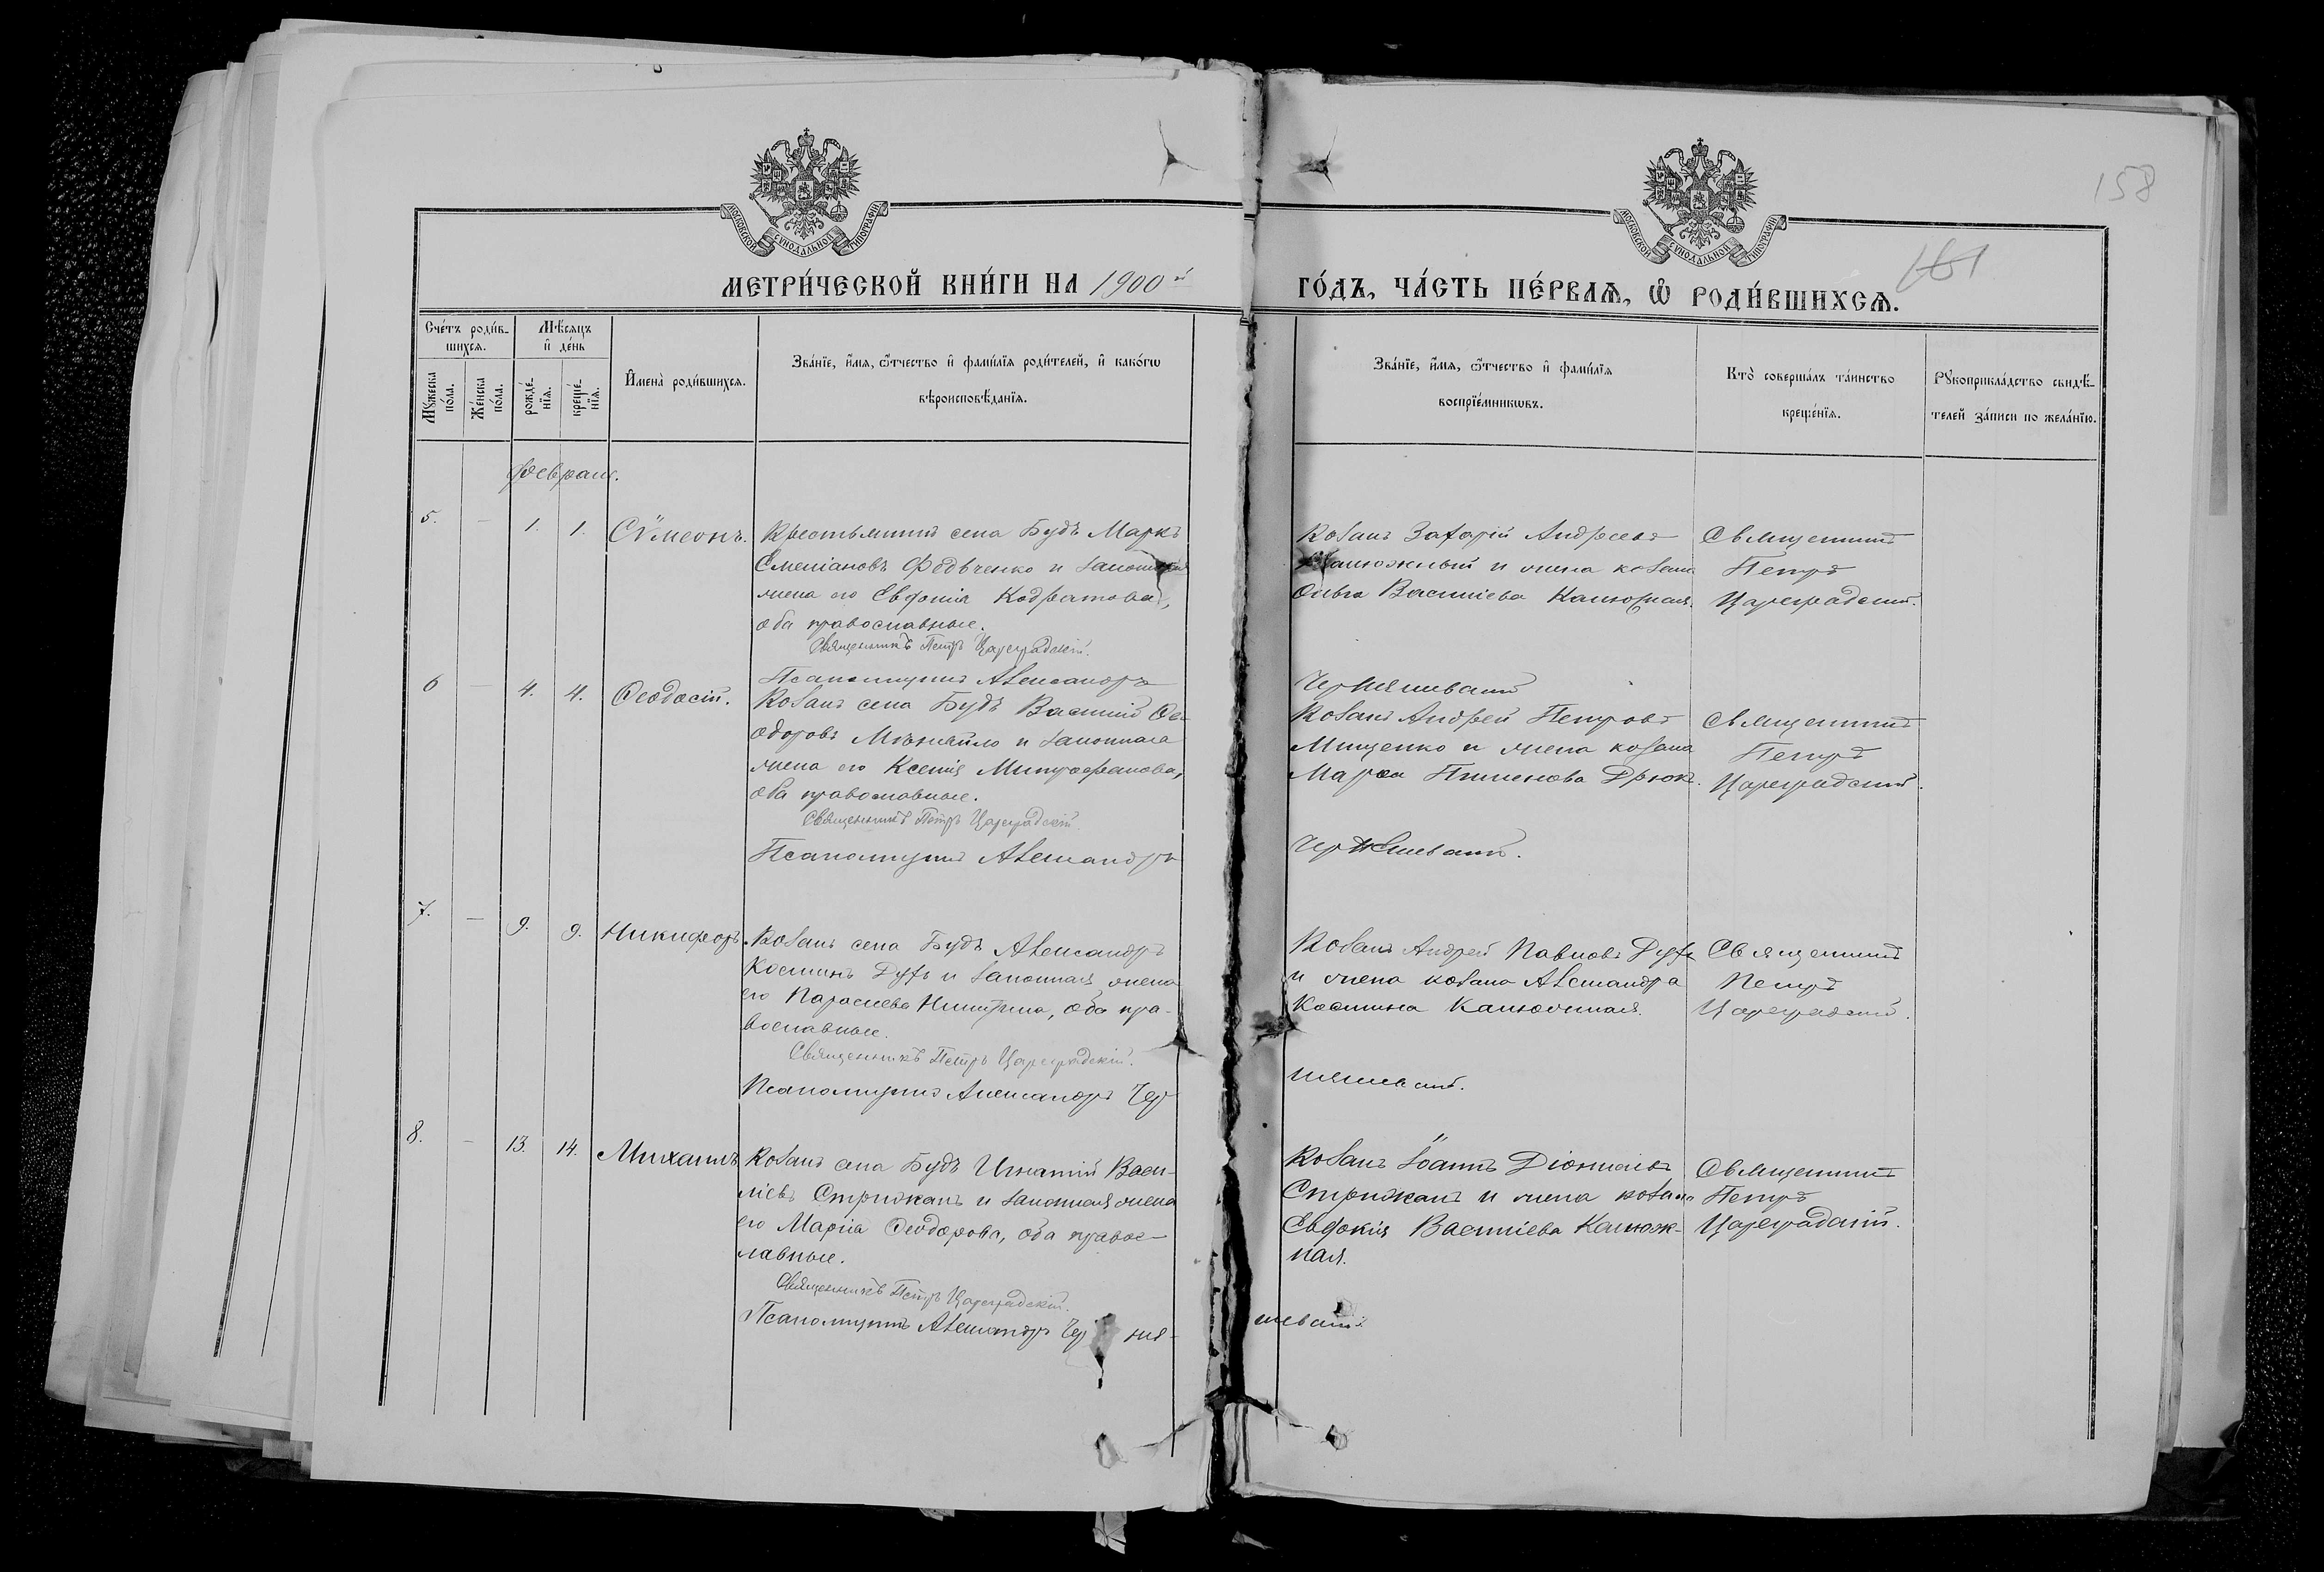 158
МОСКОВСКОЙ СѴНОДАЛЬНОЙ ТИПОГРАФІИ
МОСКОВСКОЙ СѴНОДАЛЬНОЙ ТИПОГРАФІИ
МЕТРИ́ЧЕСКОЙ КНИ́ГИ НА 1900й
ГО́ДЪ, ЧА́СТЬ ПЕ́РВАѦ, Ѽ РОДИ́ВШИХСѦ.
161
Сче́тъ роди́в-
шихсѧ.
Мѣ́сѧцъ
и҆ де́нь
Мꙋ́жеска
по́ла.
Же́нска
по́ла.
рожде́-
нїѧ.
креще́-
нїѧ.
И҆мена̀ роди́вшихсѧ.
Зва́нїе, и҆́мѧ, ѻ҆́тчество и҆ фами́лїѧ роди́телей, и҆ како́гѡ
вѣроисповѣ́данїѧ.
Зва́нїе, и҆́мѧ, ѻ҆́тчество и҆ фами́лїѧ
воспрїе́мникѡвъ.
Кто̀ соверша́лъ та́инство
креще́нїѧ.
Рꙋкоприкла́дство свидѣ́-
телей за́писи по жела́нїю.
Февраль.
5. — 1. 1. Сѵмеонъ.
Крестьянинъ села Будъ Маркъ
Емеліановъ Федѣченко и законная
жена его Евфимія Кодратова,
оба православные.
Священникъ Петръ Цареградскій.
Псаломщикъ Александръ
Козакъ Захарій Андреевъ
Калюжный и жена козака
Ольга Василіева Калюжная.
Священникъ
Петръ
Цареградскій.
Чернявскій
6 — 4. 4. Ѳеодосій.
Козакъ села Будъ Василій Ѳе-
одоровъ Михайло и законная
жена его Ксенія Митрофанова,
оба православные.
Священникъ Петръ Цареградскій.
Псаломщикъ Александръ
Козакъ Андрей Петровъ
Мищенко и жена козака
Марѳа Пименова Дрюк.
Священникъ
Петръ
Цареградскій.
7. — 9. 9. Никифоръ.
Козакъ села Будъ Александръ
Косминъ Духъ и законная жена
его Параскева Никитина, оба пра-
вославные.
Священникъ Петръ Цареградскій.
Псаломщикъ Александръ Чер
Козакъ Андрей Павловъ Духъ
и жена козака Александра
Космина Калюжная.
Священникъ
Петръ
Цареградскій.
8. — 13. 14. Михаилъ
Козакъ села Будъ Игнатій Васи-
ліевъ Стрижакъ и законная жена
его Марія Ѳеодорова, оба правос-
лавные.
Священникъ Петръ Цареградскій.
Псаломщикъ Александръ Чер ня-
Козакъ Іоаннъ Діонисіевъ
Стрижакъ и жена козака
Евдокія Василіева Калюж-
ная.
Священникъ
Петръ
Цареградскій.